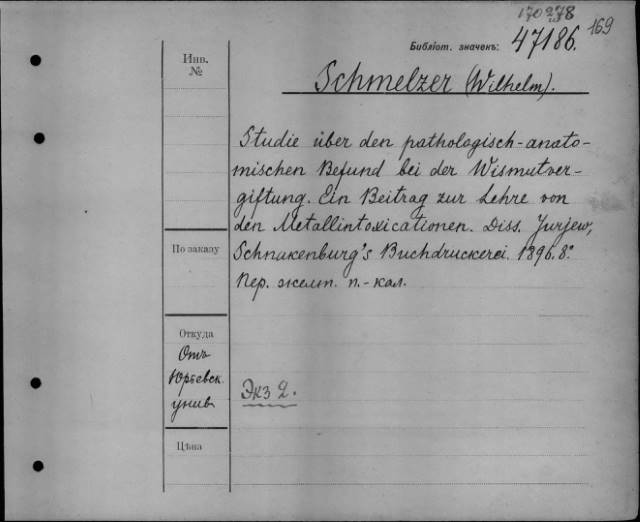 170278
169
Библіот. значекъ: 47186.
Инв.
№
Schmelzer (Wilhelm).
Studie über den pathologisch-anato-
mischen Befund bei der Wismutver-
giftung. Ein Beitrag zur Lehre von
den Metallintoxicationen. Diss. Jurjew,
Schnakenburg's Buchdruckerei. 1896. 8º
Пер. желт. п.-кал.
По заказу
Откуда
Отъ
Юрьевск.
унив.
Экз 2.
Цѣна